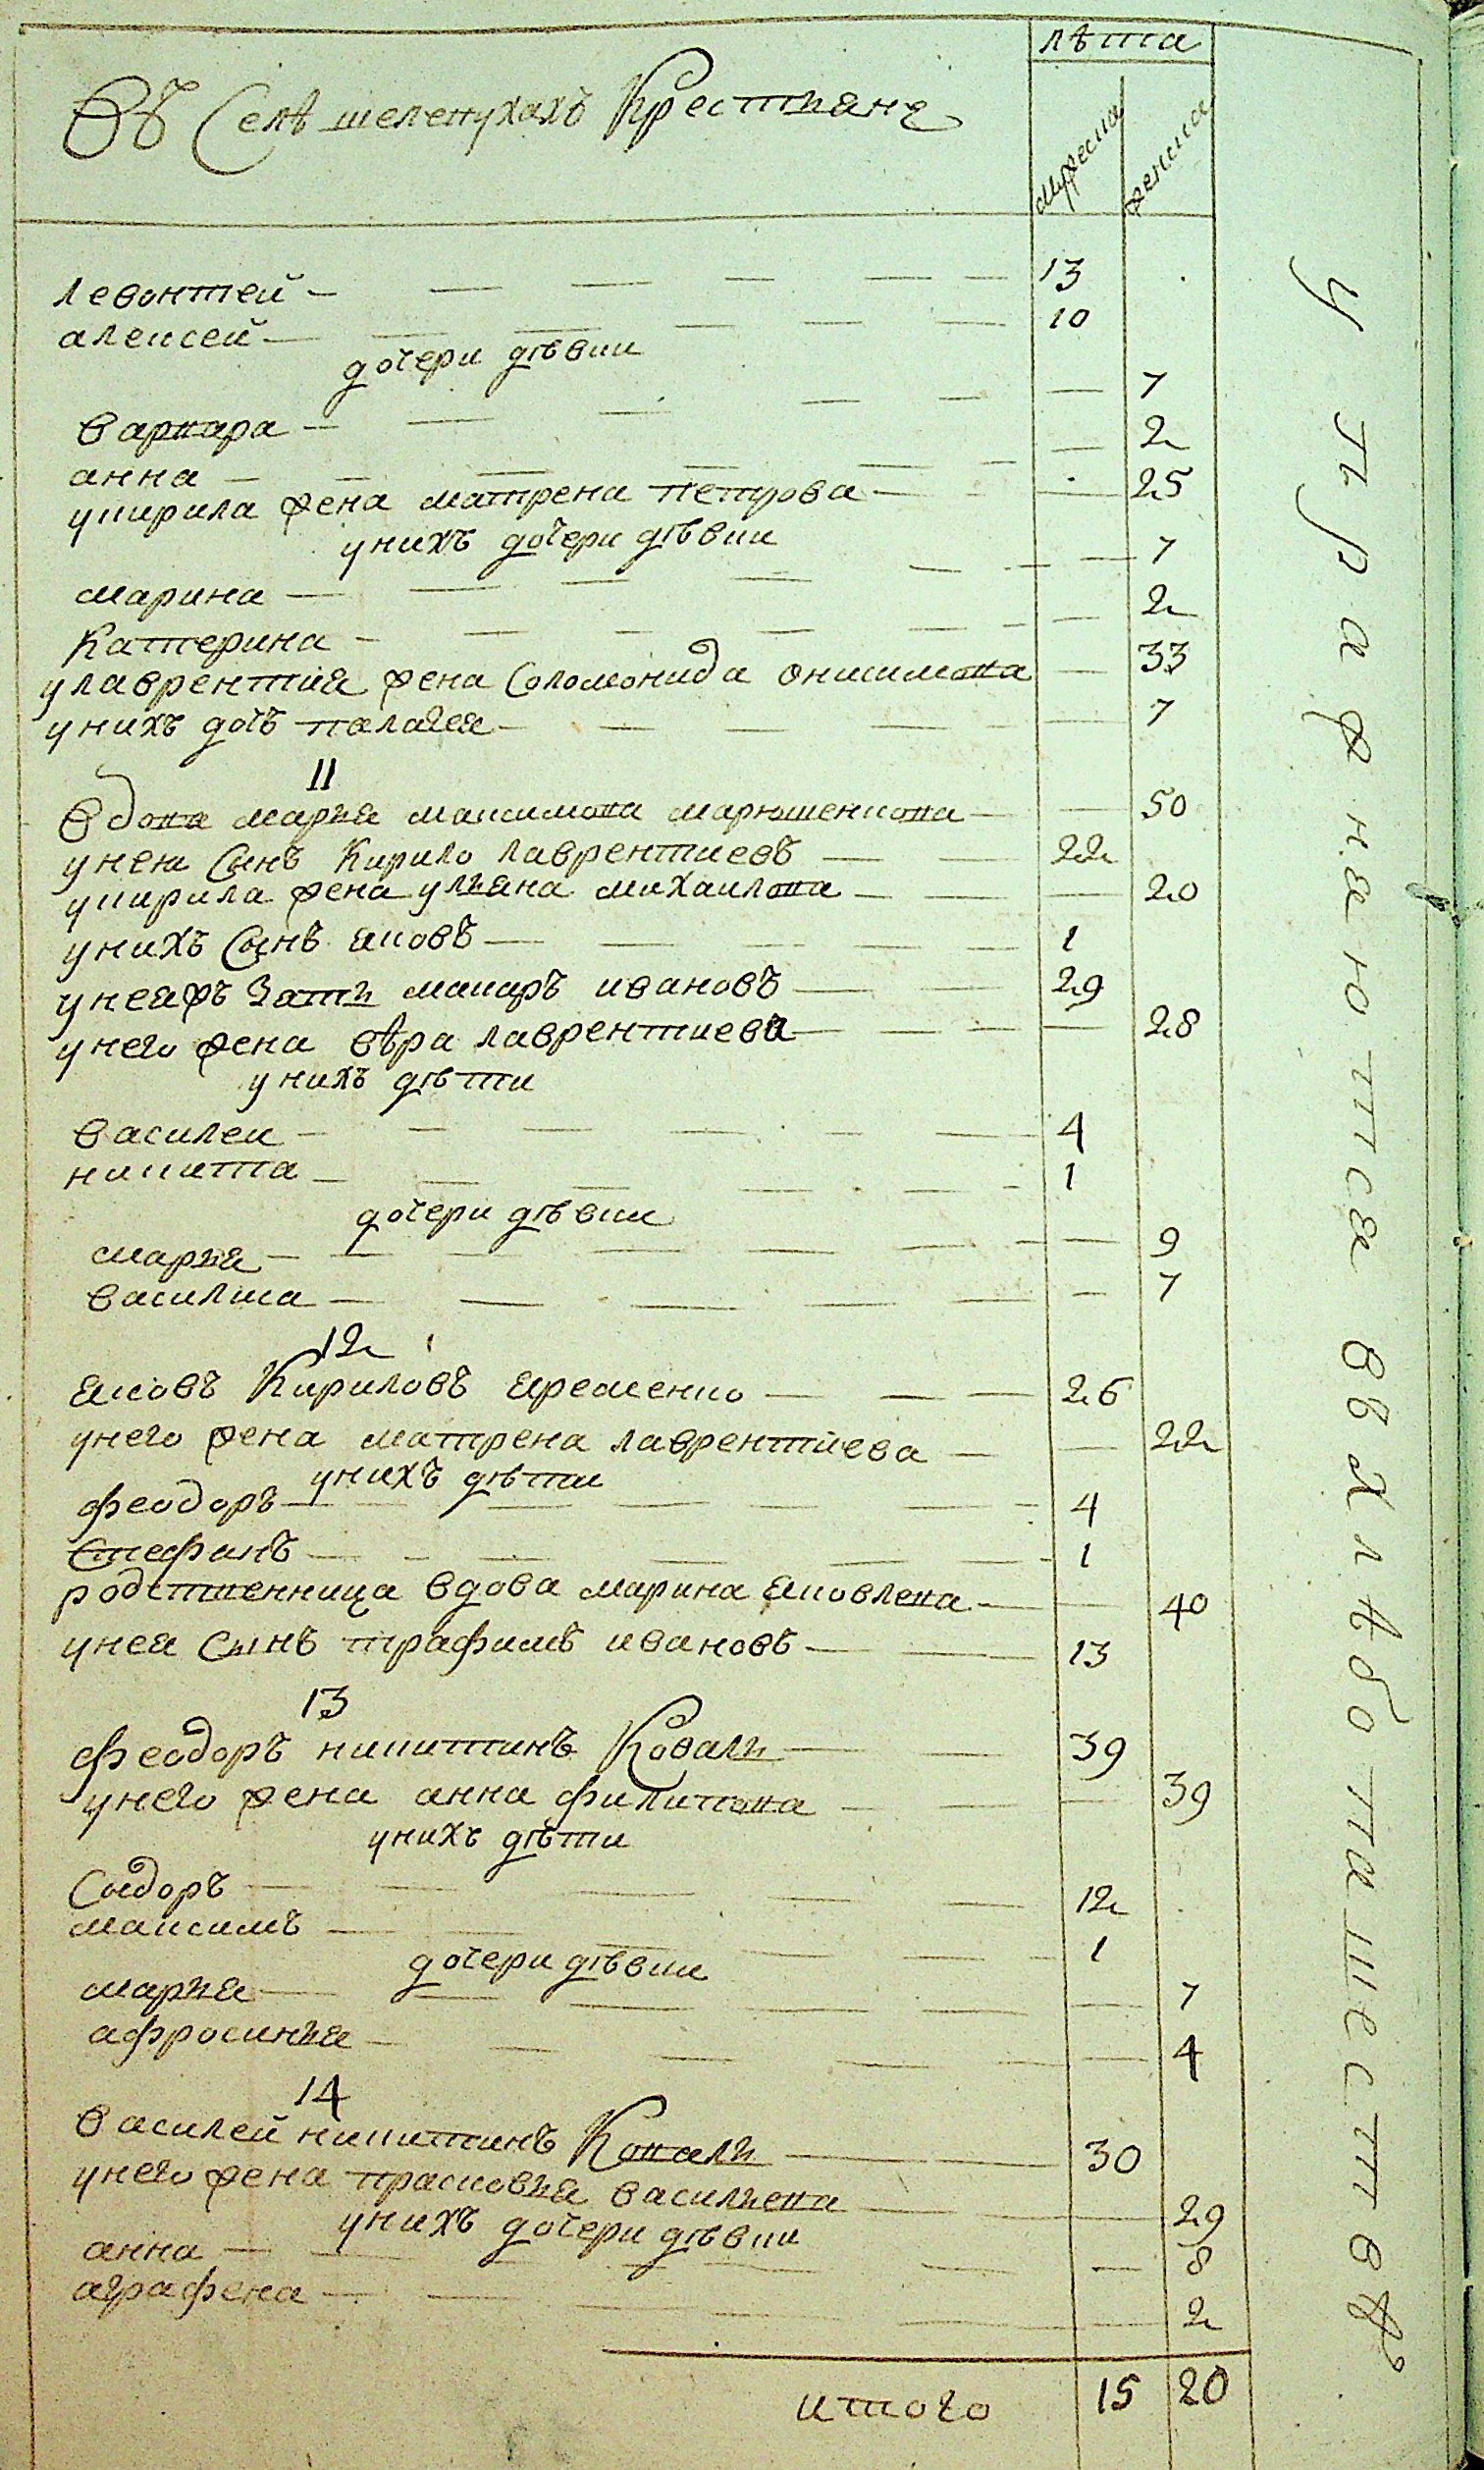 лѣта
Въ Селѣ шелепухахъ Крестьянъ
мужеска
женска
Левонтей 13
алексей 10
дочери дѣвки
варвара 7
анна 2
укирила жена матрена петрова 25
унихъ дочери дѣвки
марина 7
Катерина 2
улаврентия жена Соломонида онисимова 33
унихъ дочъ палагея 7
11
Вдова марья максимова марюшенкова 50
унею Сынъ Кирило лаврентиевъ 22
укирила жена ульяна михаилова 20
унихъ Сынъ яковъ 1
унеяжъ Зать макаръ ивановъ 29
унего жена вѣра лаврентиева 28
унихъ дѣти
василеи 4
никита 1
дочери дѣвки
марья 9
василиса 7
12
яковъ Кириловъ яременко 26
унего жена матрена лаврентиева 22
унихъ дѣти
феодоръ 4
Стефанъ 1
родственница вдова марина яковлева 40
унея Сынъ трафимъ ивановъ 13
13
феодоръ никитинъ Коваль 39
унего жена анна филипова 39
унихъ дѣти
Сидоръ 12
максимъ 1
дочери дѣвки
марья 7
афросинья 4
14
василей никитинъ Коваль 30
унего жена прасковья васильева 29
унихъ дочери дѣвки
анна 8
аграфена 2
итого 15 20
упражняются въ хлѣбопашествѣ